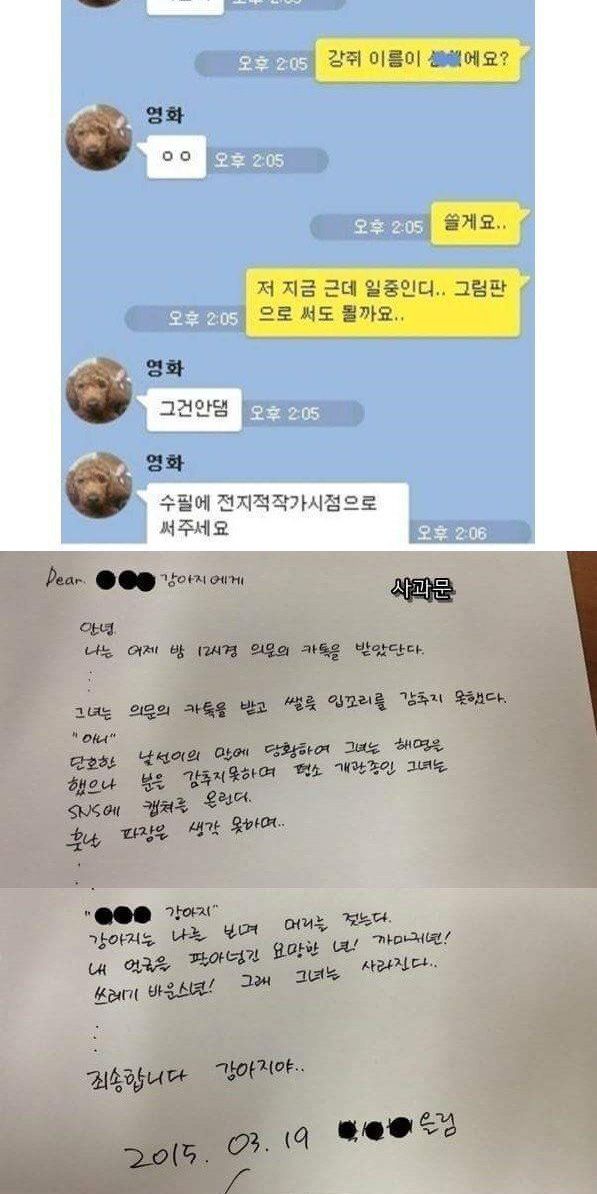 오후 2:05
오후 2:05 강쥐 이름이 에요?
영화
ㅇㅇ 오후 2:05
오후 2:05 쓸게요..
저 지금 근데 일중인디.. 그림판
오후 2:05 으로 써도 될까요..
영화
그건안댐 오후 2:05
영화
수필에 전지적작가시점으로
써주세요 오후 2:06
Dear. 강아지에게 사과문
안녕.
나는 어제 밤 12시경 의문의 카톡을 받았단다.
그녀는 의문의 카톡을 받고 쌜룻 입꼬리를 감추지 못했다.
"아니"
단호한 낯선이의 말에 당황하여 그녀는 해명을
했으나 분을 감추지못하며 평소 개관종인 그녀는
SNS에 캡쳐를 올린다.
훗날 파장은 생각 못하며..
" 강아지"
강아지는 나를 보며 머리를 젓는다.
내 얼굴을 팔아넘긴 요망한 년! 까마귀년!
쓰레기 바운스년! 그래 그녀는 사라진다..
죄송합니다 강아지야..
2015. 03. 19 올림